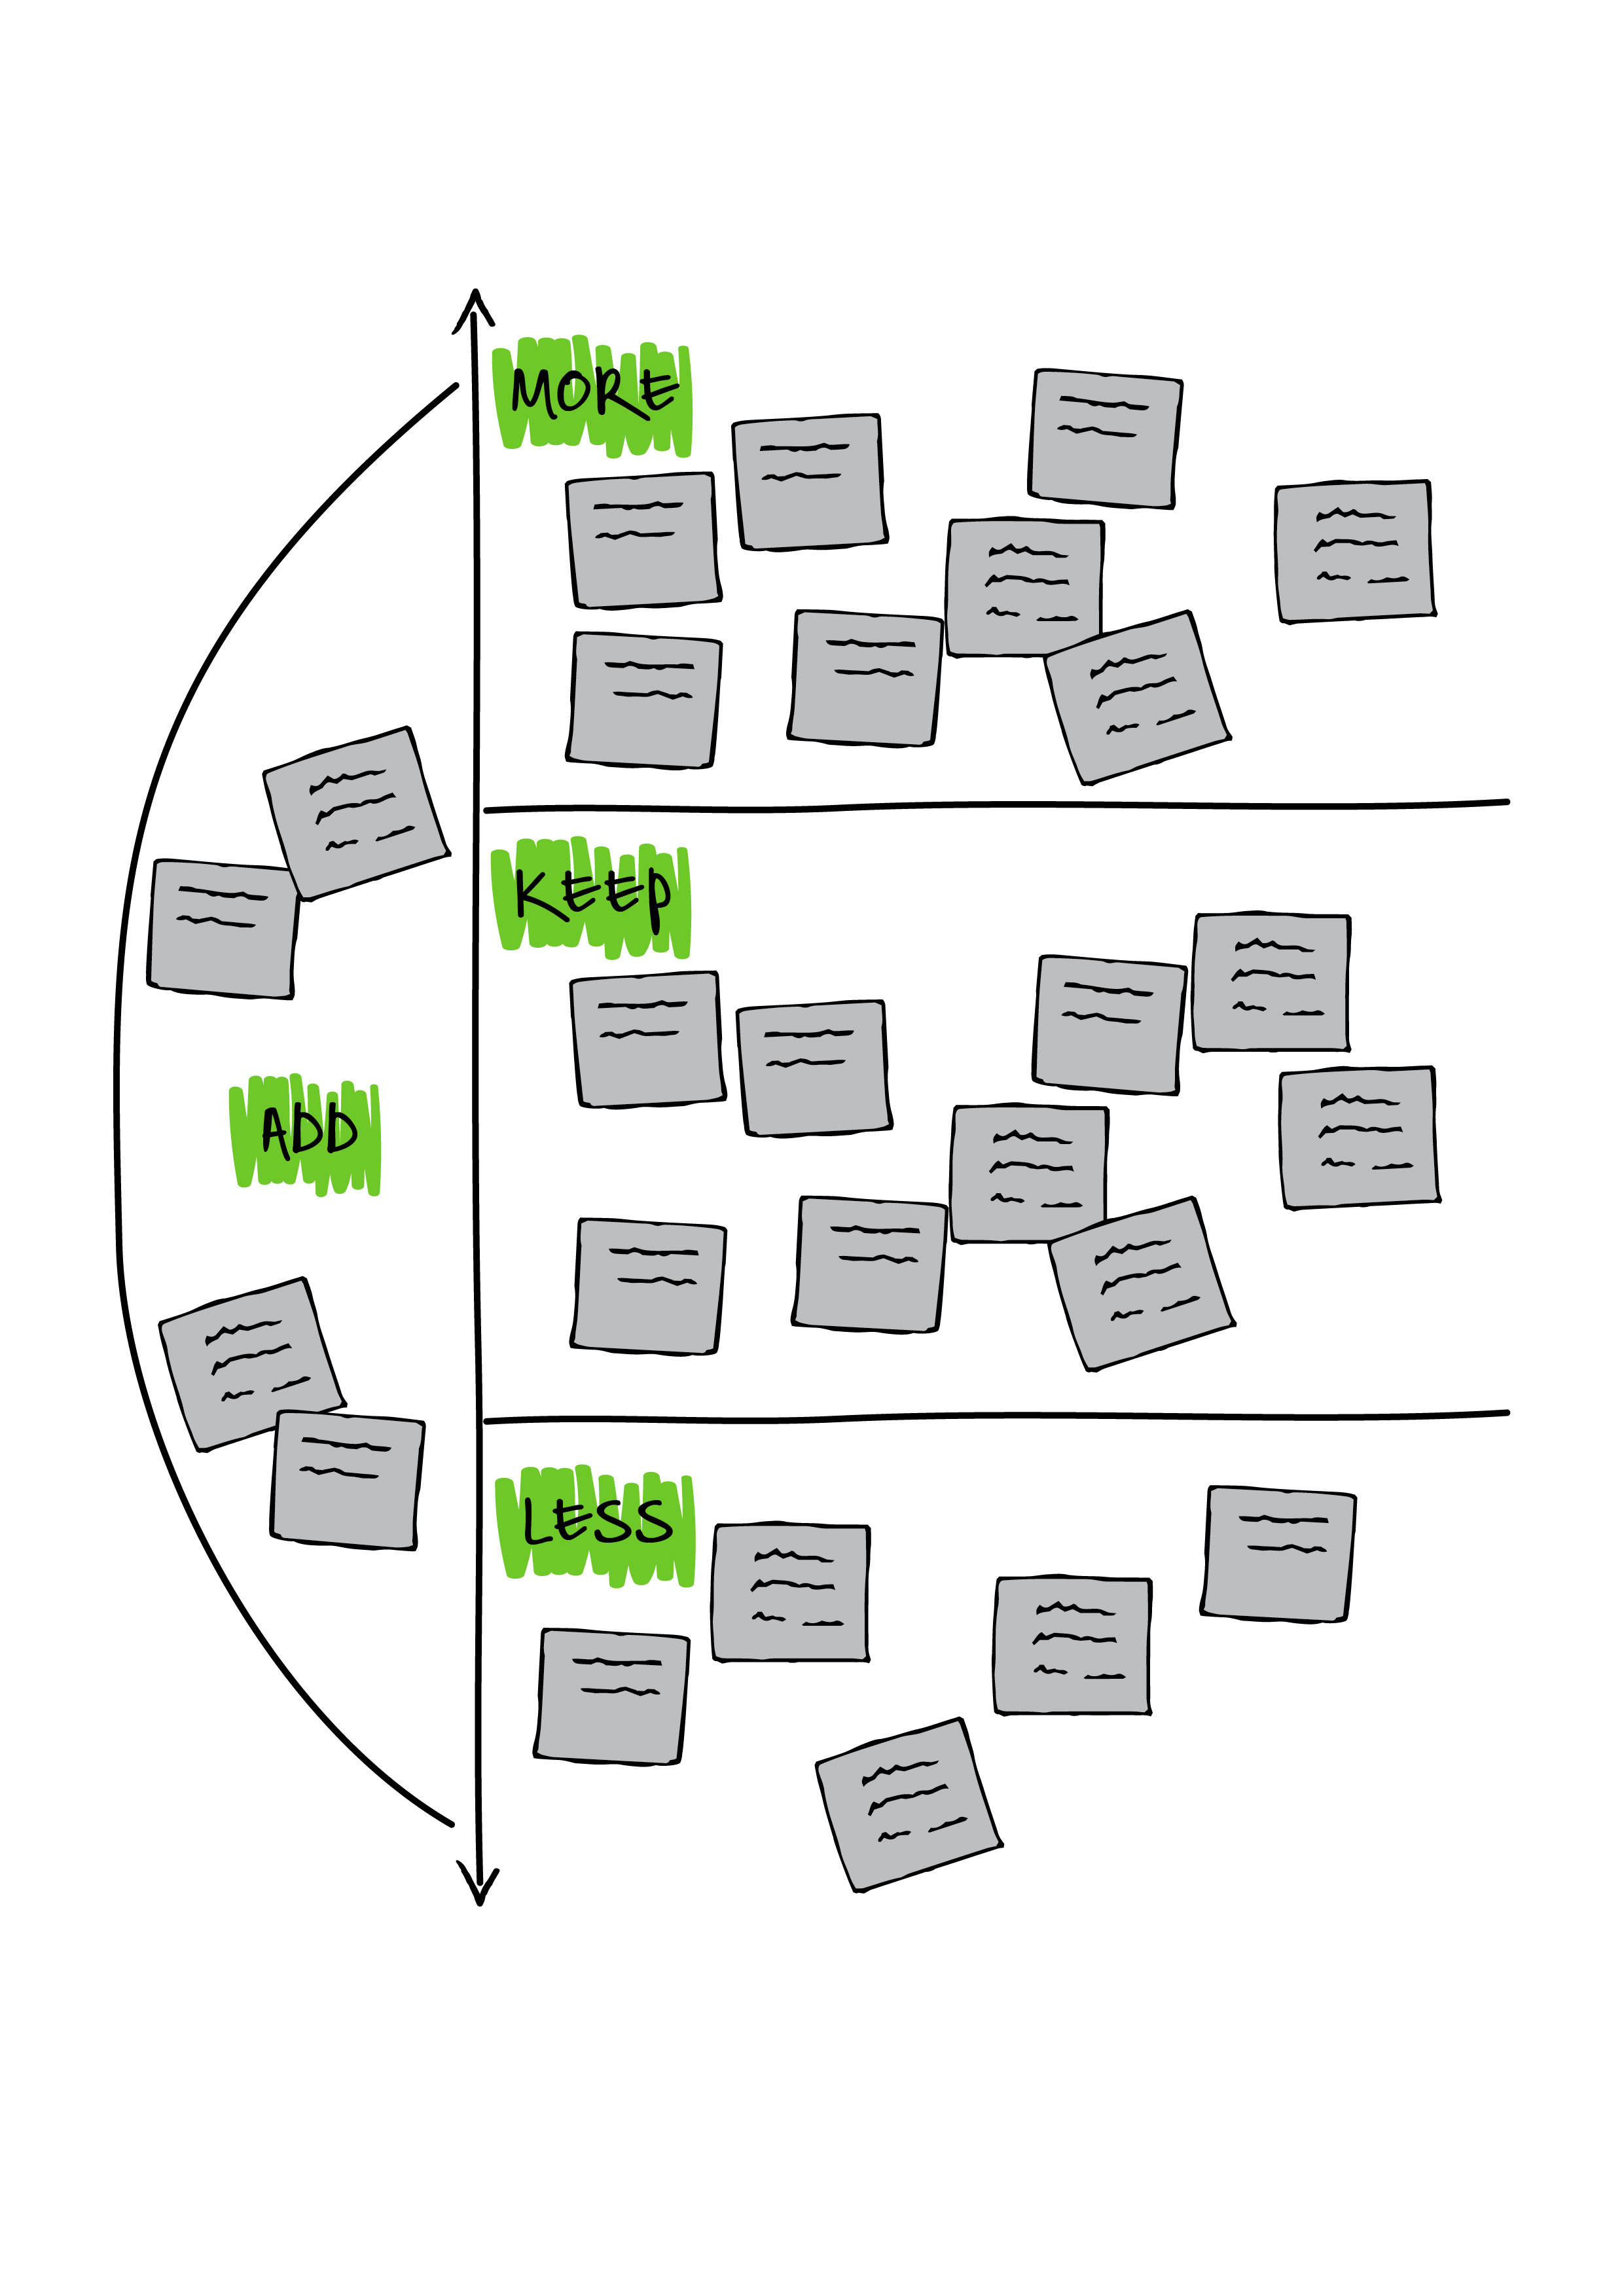 MORE
KEEP
ADD
LESS